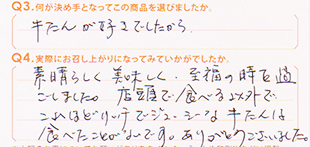 Q3.何が決め手となってこの商品を選びましたか。
牛たんが好きでしたから。
Q4.実際にお召し上がりになってみていかがでしたか。
素晴らしく美味しく、至福の時を過
ごしました。店頭で食べる以外で
これほどリッチでジューシーな牛たんは
食べたことがないです。ありがとうございました。